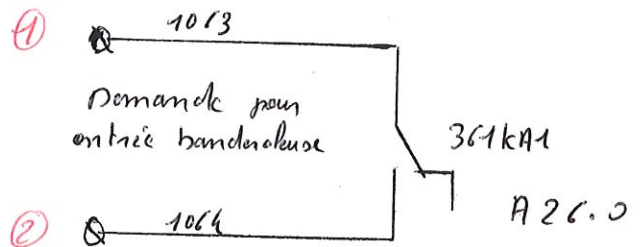 1
1063
Demande pour
entrée banderoleuse
361KA1
A26.0
2
1064